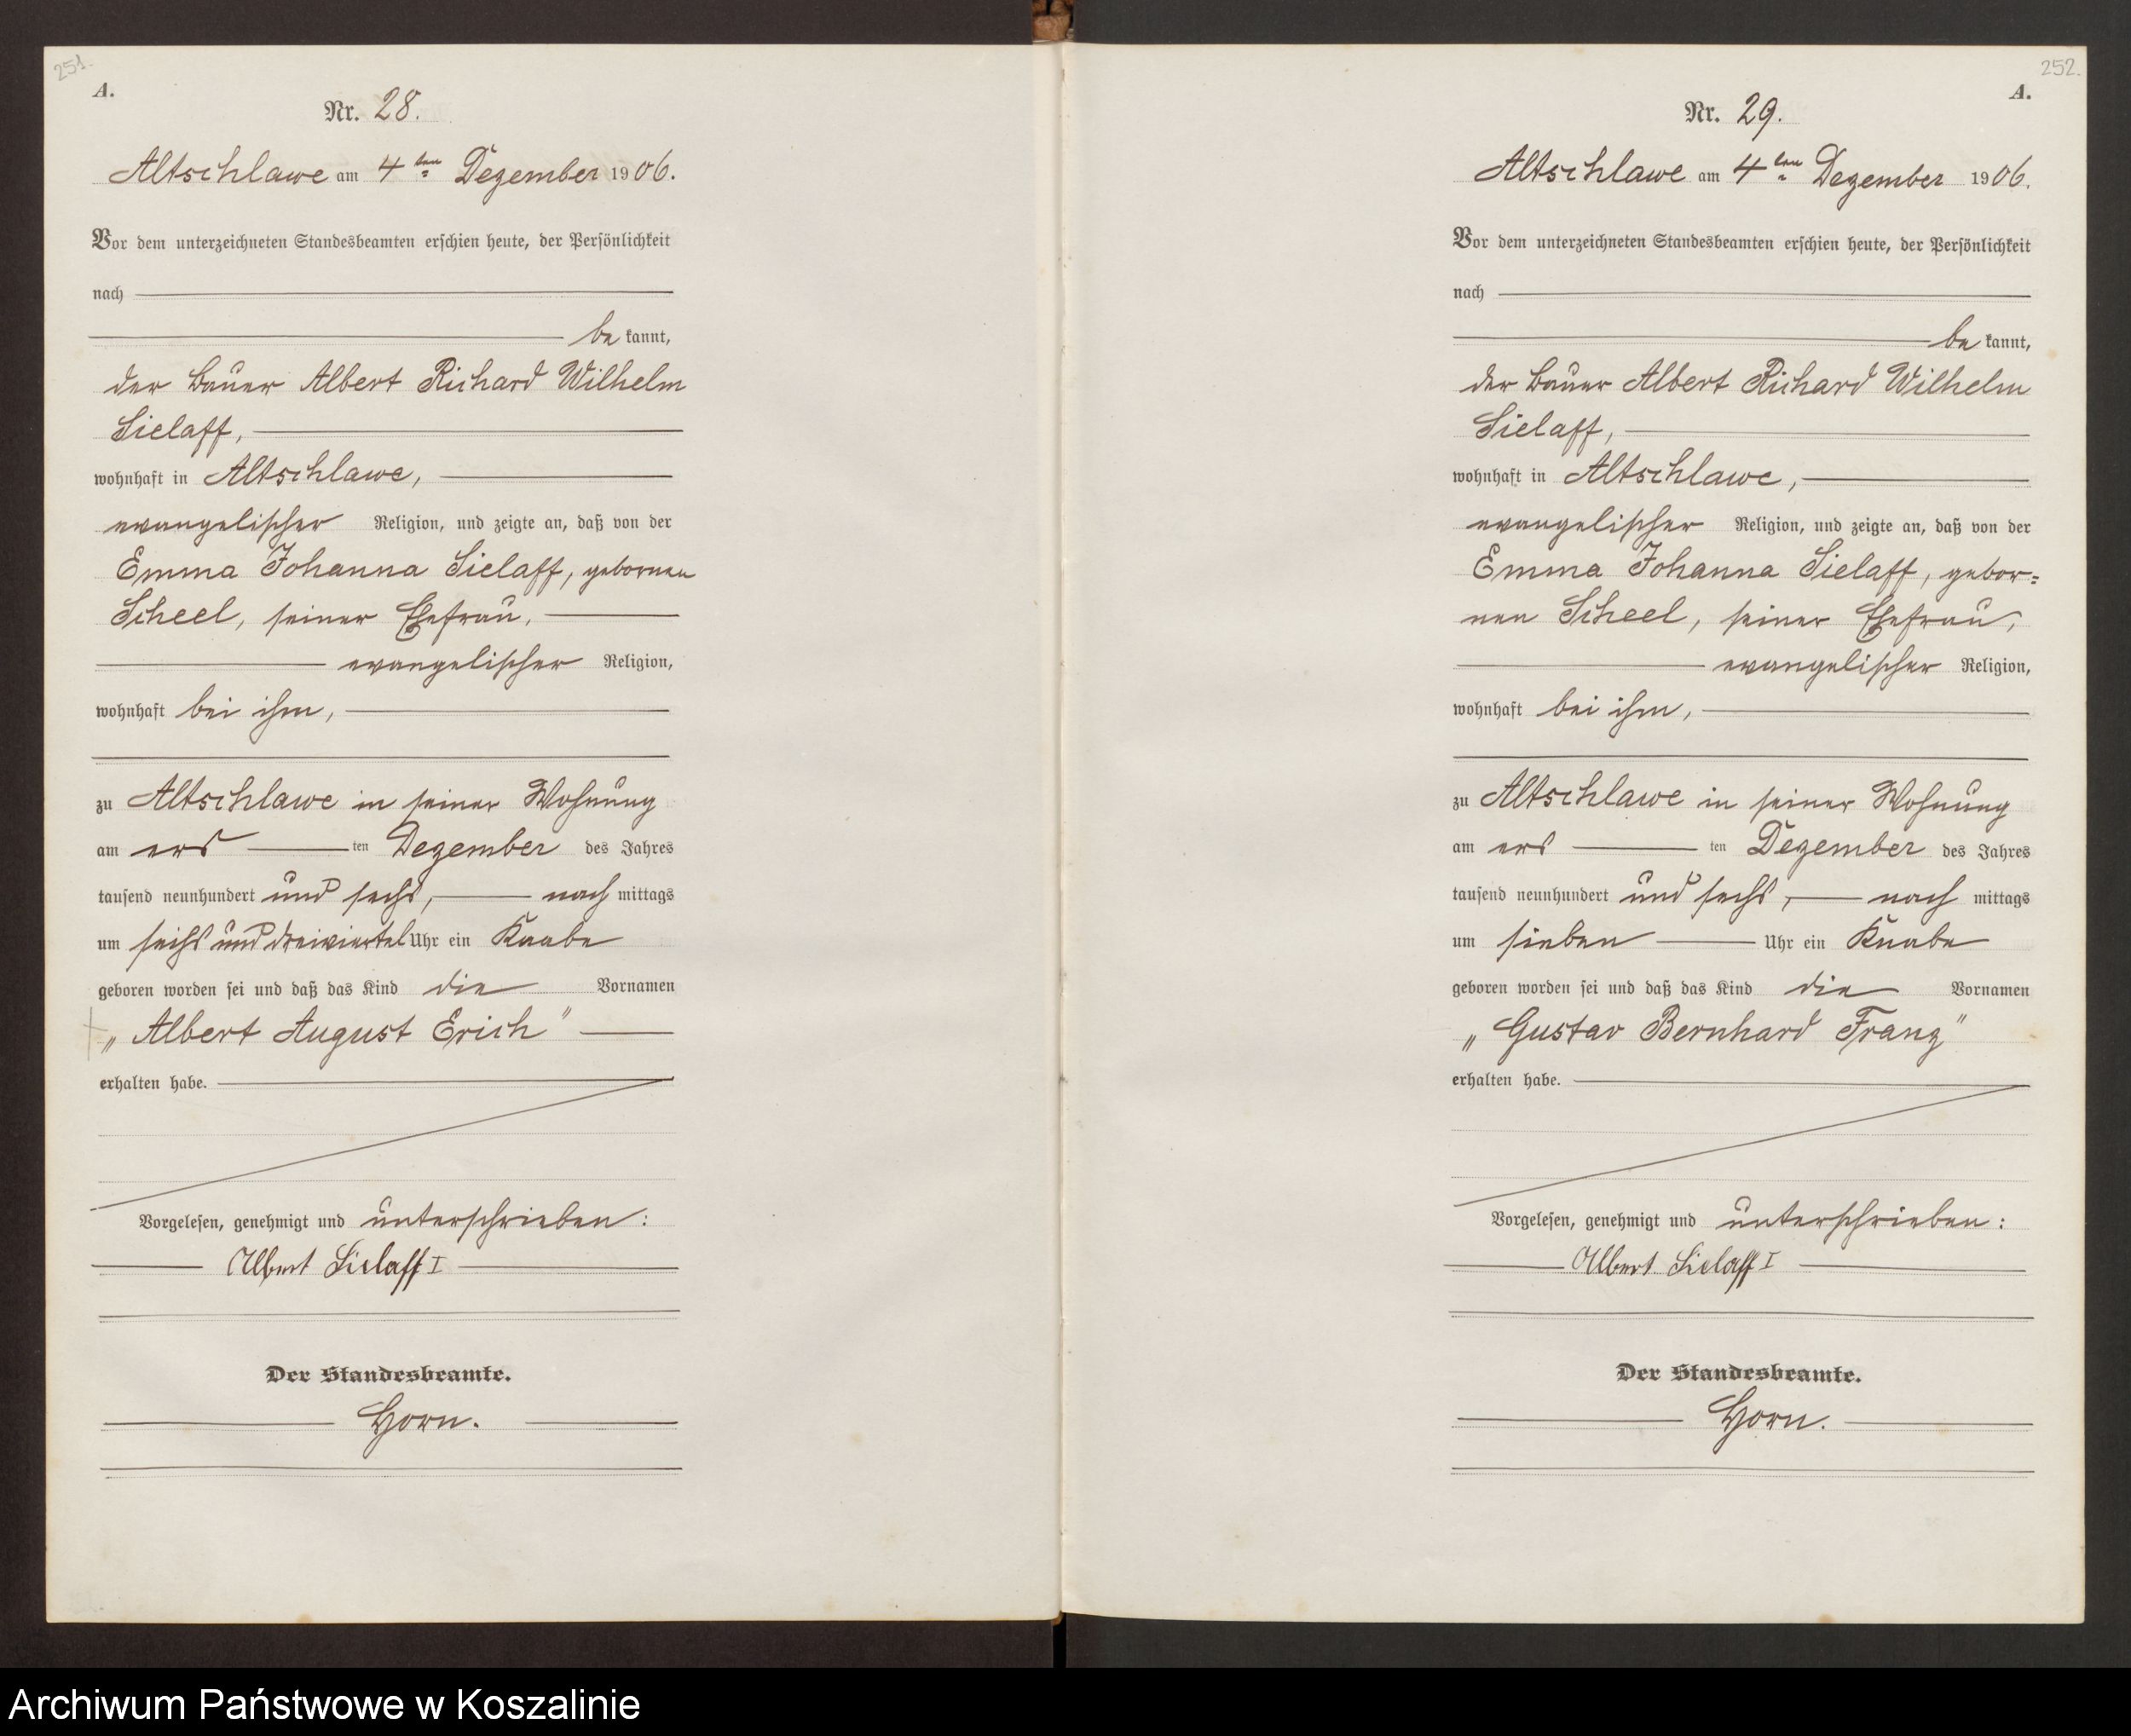 251.
A.
Nr. 28.
Altschlawe am 4ten Dezember 1906.
Vor dem unterzeichneten Standesbeamten erschien heute, der Persönlichkeit
nach
be kannt,
der Bauer Albert Richard Wilhelm
Sielaff,
wohnhaft in Altschlawe,
evangelischer Religion, und zeigte an, daß von der
Emma Johanna Sielaff, gebornen
Scheel, seiner Ehefrau,
evangelischer Religion,
wohnhaft bei ihm,
zu Altschlawe in seiner Wohnung
am ers ten Dezember des Jahres
tausend neunhundert und sechs, nach mittags
um sechs und dreiviertel Uhr ein Knabe
geboren worden sei und daß das Kind die Vornamen
„Albert August Erich"
erhalten habe.
Vorgelesen, genehmigt und unterschrieben:
Albert Sielaff I
Der Standesbeamte.
Horn.
252.
A.
Nr. 29.
Altschlawe am 4ten Dezember 1906.
Vor dem unterzeichneten Standesbeamten erschien heute, der Persönlichkeit
nach
be kannt,
der Bauer Albert Richard Wilhelm
Sielaff,
wohnhaft in Altschlawe,
evangelischer Religion, und zeigte an, daß von der
Emma Johanna Sielaff, gebor=
nen Scheel, seiner Ehefrau,
evangelischer Religion,
wohnhaft bei ihm,
zu Altschlawe in seiner Wohnung
am ers ten Dezember des Jahres
tausend neunhundert und sechs, nach mittags
um sieben Uhr ein Knabe
geboren worden sei und daß das Kind die Vornamen
„Gustav Bernhard Franz"
erhalten habe.
Vorgelesen, genehmigt und unterschrieben:
Albert Sielaff I
Der Standesbeamte.
Horn.
Archiwum Państwowe w Koszalinie